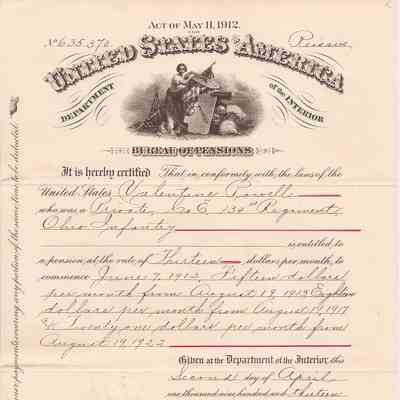 ACT OF MAY 11, 1912.
No 635.370
Reissue
UNITED STATES OF AMERICA
DEPARTMENT of the INTERIOR
BUREAU OF PENSIONS
It is hereby certified That in conformity with the laws of the
United States Valentine Powell
who was a Private, Co E, 134th Regiment,
Ohio Infantry
is entitled to
a pension at the rate of Thirteen dollars per month, to
commence June 7, 1912, Fifteen dollars
per month from August 19, 1913 Eighteen
dollars per month from August 19, 1917
& Twenty one dollars per month from
August 19, 1922
Given at the Department of the Interior, this
Second day of April
one thousand nine hundred and thirteen
any portion of the same time, to be deducted.